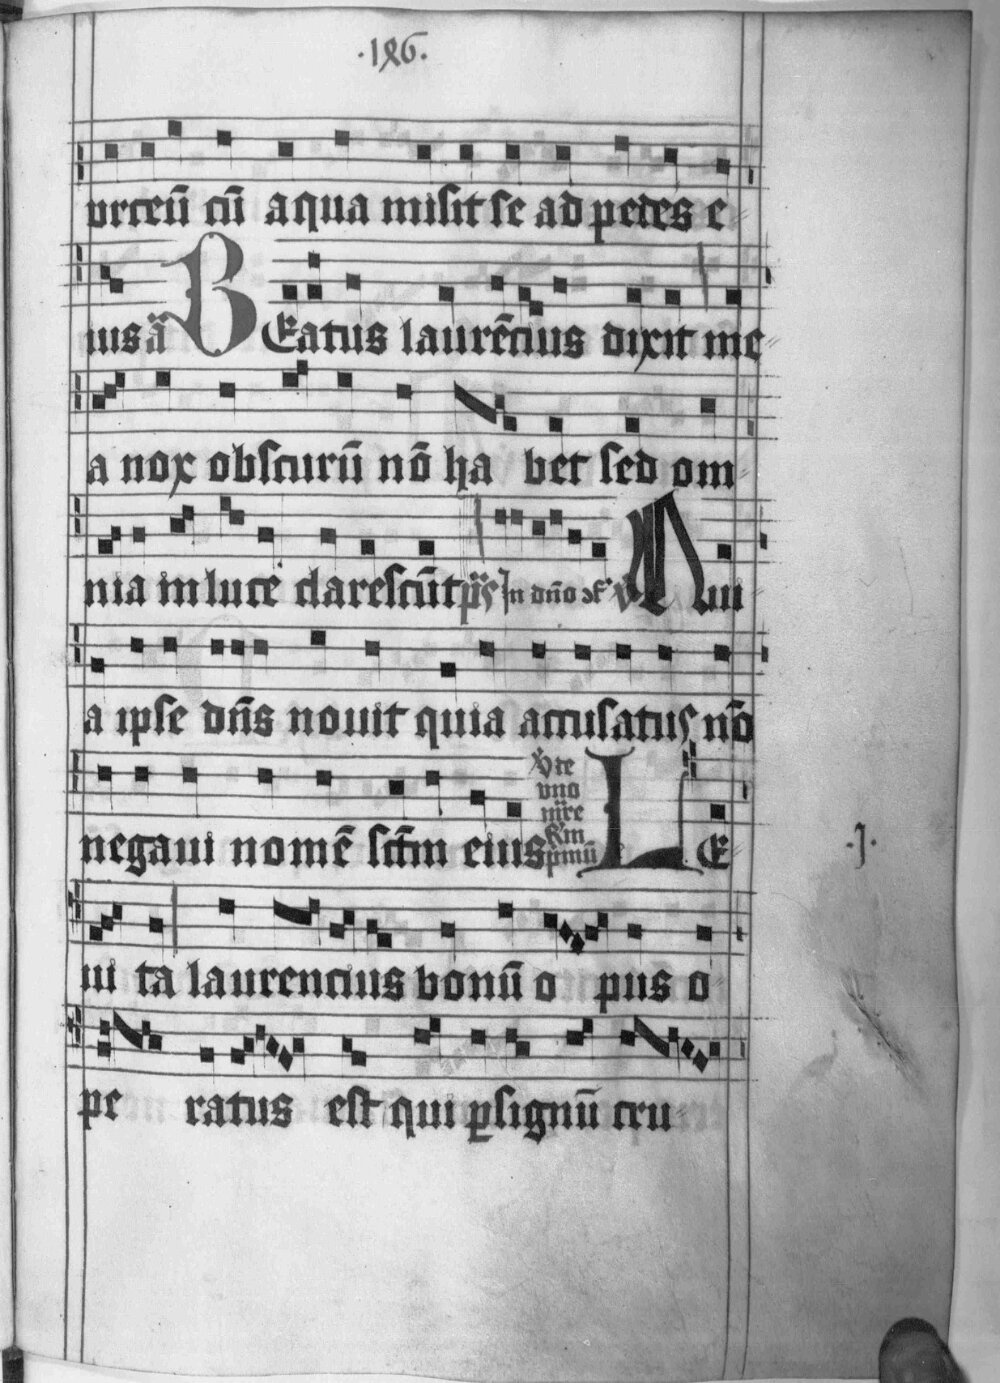 ·186·
urceū cū aqua misit se ad pedes e
ius ā BEatus laurēcius dixit me
a nox obscurū nō ha bet sed om
nia in luce clarescūt p̄s In dn̄o ꝯf
a ipse dn̄s nouit quia accusatus nō
negaui nomē sctm̄ eius LE
ui ta laurencius bonū o pus o
pe ratus est qui ꝑ signū cru
·J·